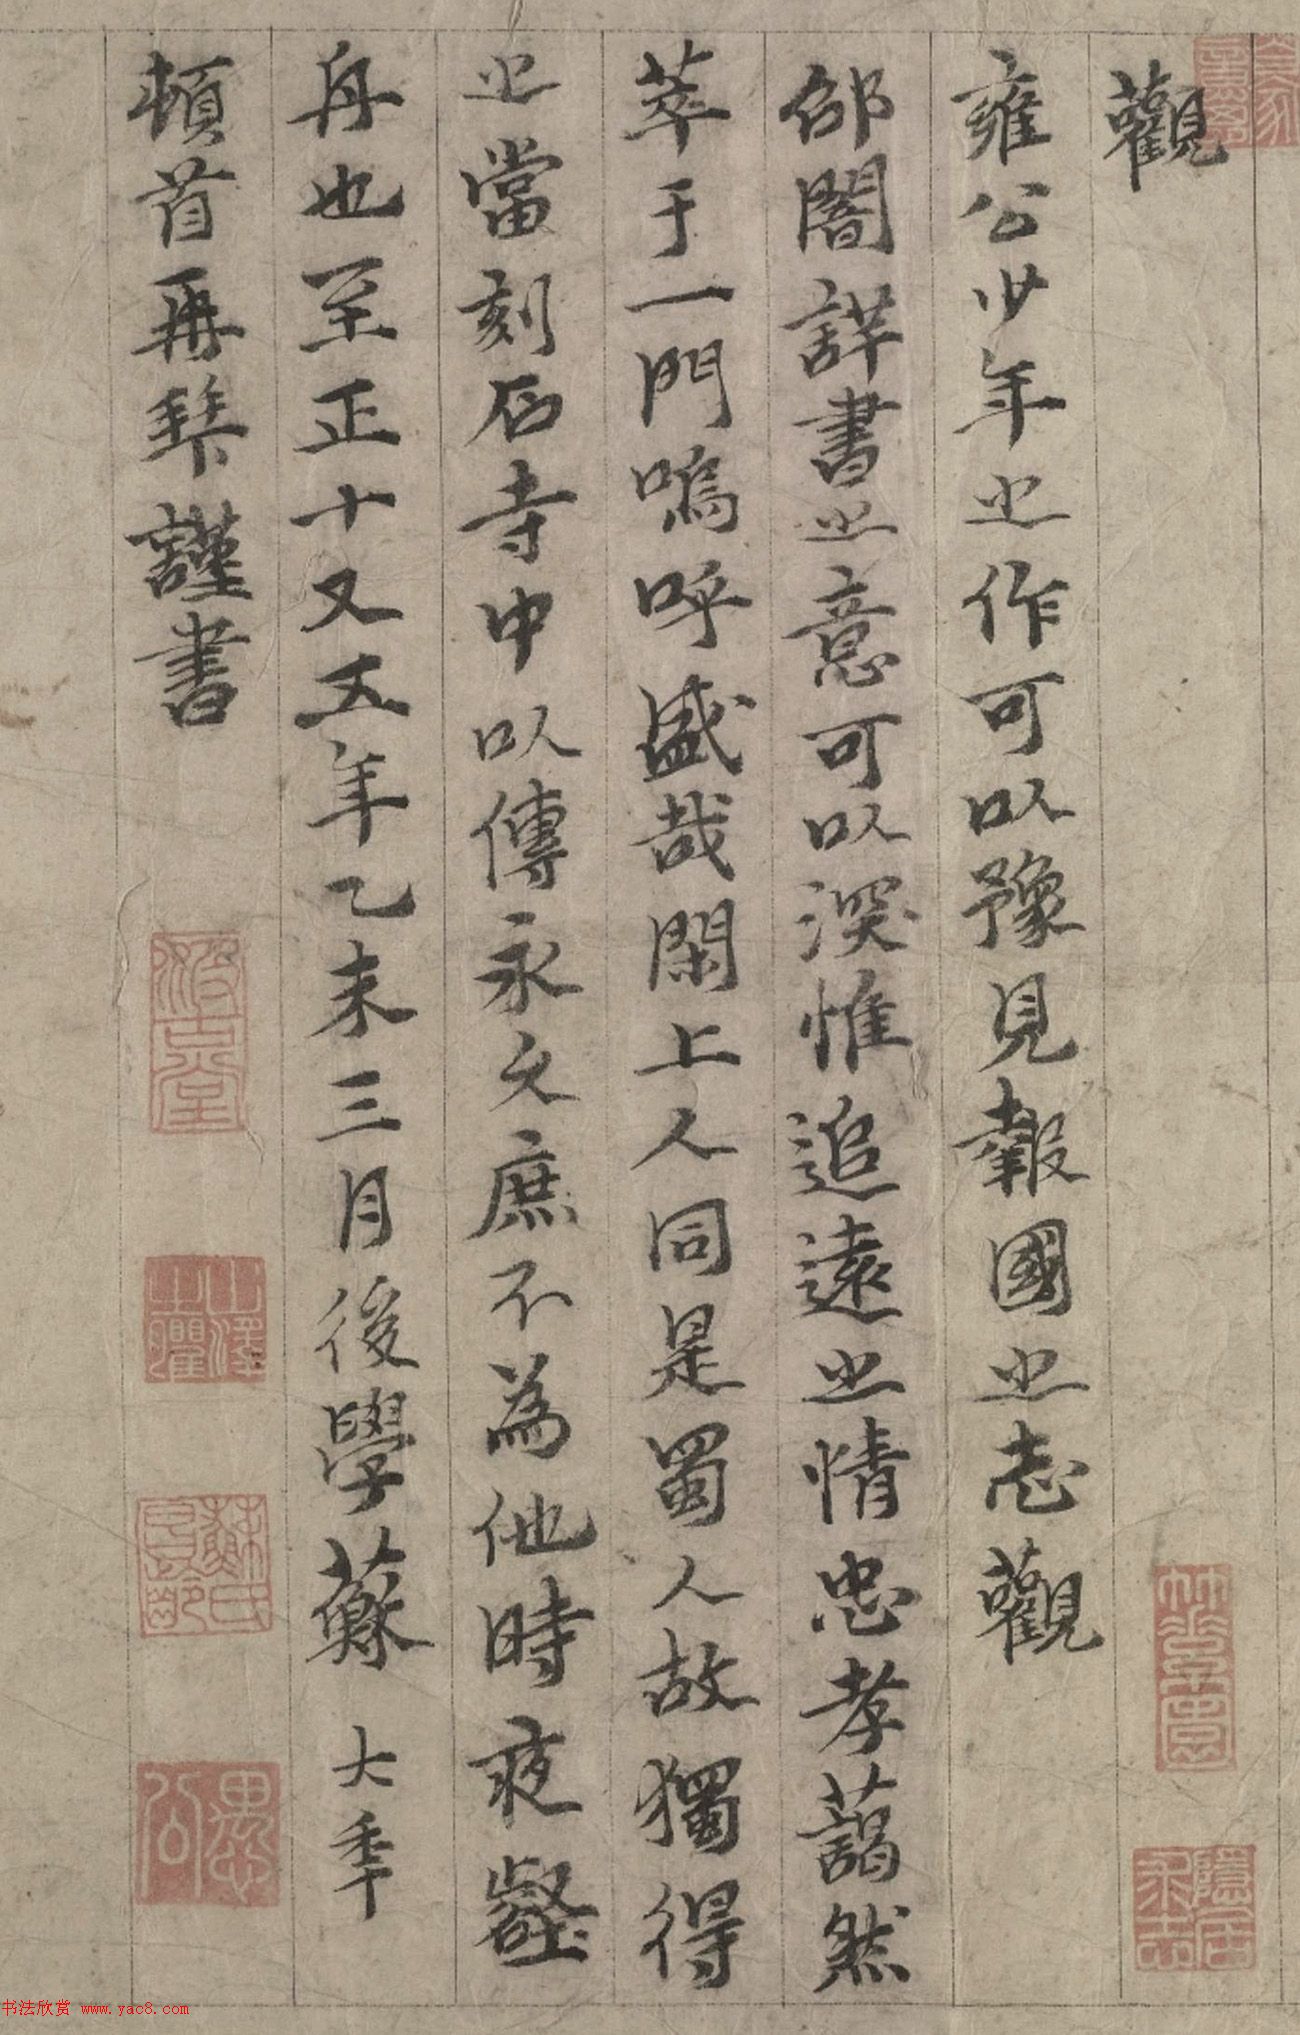 觀
雍公少年之作可以豫見報國之志觀
邵闇詳書之意可以深惟追遠之情忠孝藹然
萃于一門嗚呼盛哉閑上人同是蜀人故獨得
之當刻石寺中以傳永久庶不為他時夜壑
舟也至正十又五年乙未三月後學蘇大年
頓首再拜謹書
山澤
臞
蘇氏
昌齡
愚公
隱居
求志
书法欣赏 www.yac8.com